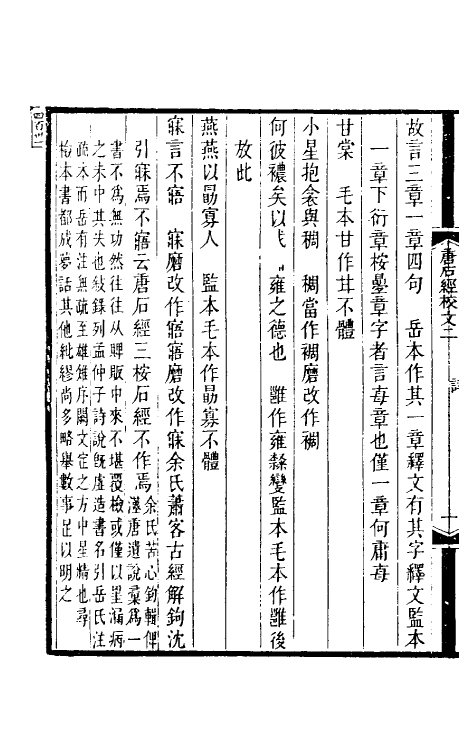 唐石經校文三
詩
十
故言三章一章四句　岳本作其一章釋文有其字釋文監本
一章下衍章按疊章字者言每章也僅一章何庸每
甘棠　毛本甘作苷不體
小星抱衾與稠　稠當作裯磨改作裯
何彼襛矣以　雍之德也　雝作雍隸變監本毛本作雝後
放此
燕燕以勖寡人　監本毛本作勗寡不體
寐言不寤　寐磨改作寤寤磨改作寐余氏蕭客古經解鉤沈
引寐焉不寤云唐石經三桉石經不作焉余氏苦心鉤輯俾
漢唐遺說彙爲一
書不爲無功然往往从稗販中來不堪覆檢或僅以星漏病
之未中其失也敍錄列孟仲子詩說旣虛造書名引岳氏注
疏本而岳有注無疏至雄雉序闕文定之方中星精也尋
檢本書都成夢話其他紕繆尚多略舉數事足以明之